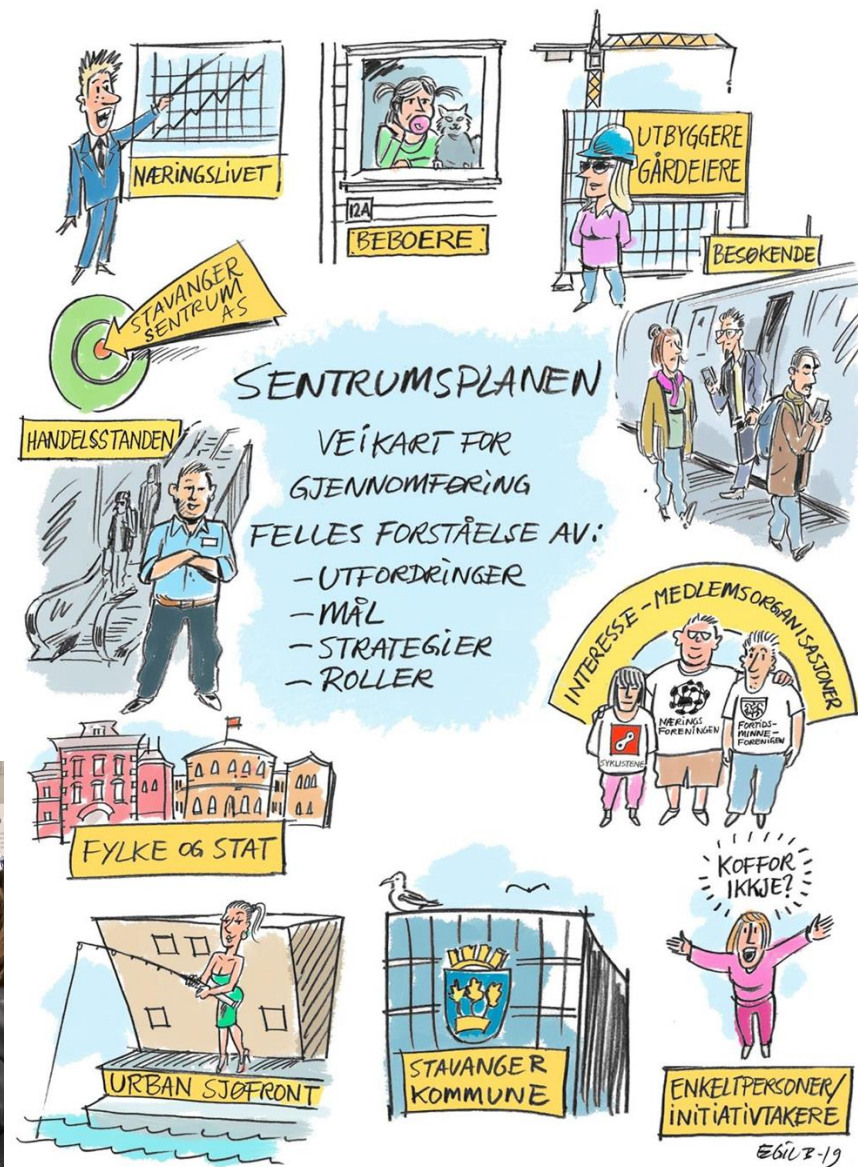 NÆRINGSLIVET
12A
BEBOERE
UTBYGGERE
GÅRDEIERE
BESØKENDE
STAVANGER
SENTRUM
AS
HANDELSSTANDEN
SENTRUMSPLANEN
VEIKART FOR
GJENNOMFØRING
FELLES FORSTÅELSE AV:
- UTFORDRINGER
- MÅL
- STRATEGIER
- ROLLER
INTERESSE-MEDLEMSORGANISASJONER
SYKLISTENE
NÆRINGS
FORENINGEN
FORTIDS-
MINNE-
FORENIGEN
FYLKE OG STAT
KOFFOR
IKKJE?
URBAN SJØFRONT
STAVANGER
KOMMUNE
ENKELTPERSONER/
INITIATIVTAKERE
EGIL B-19